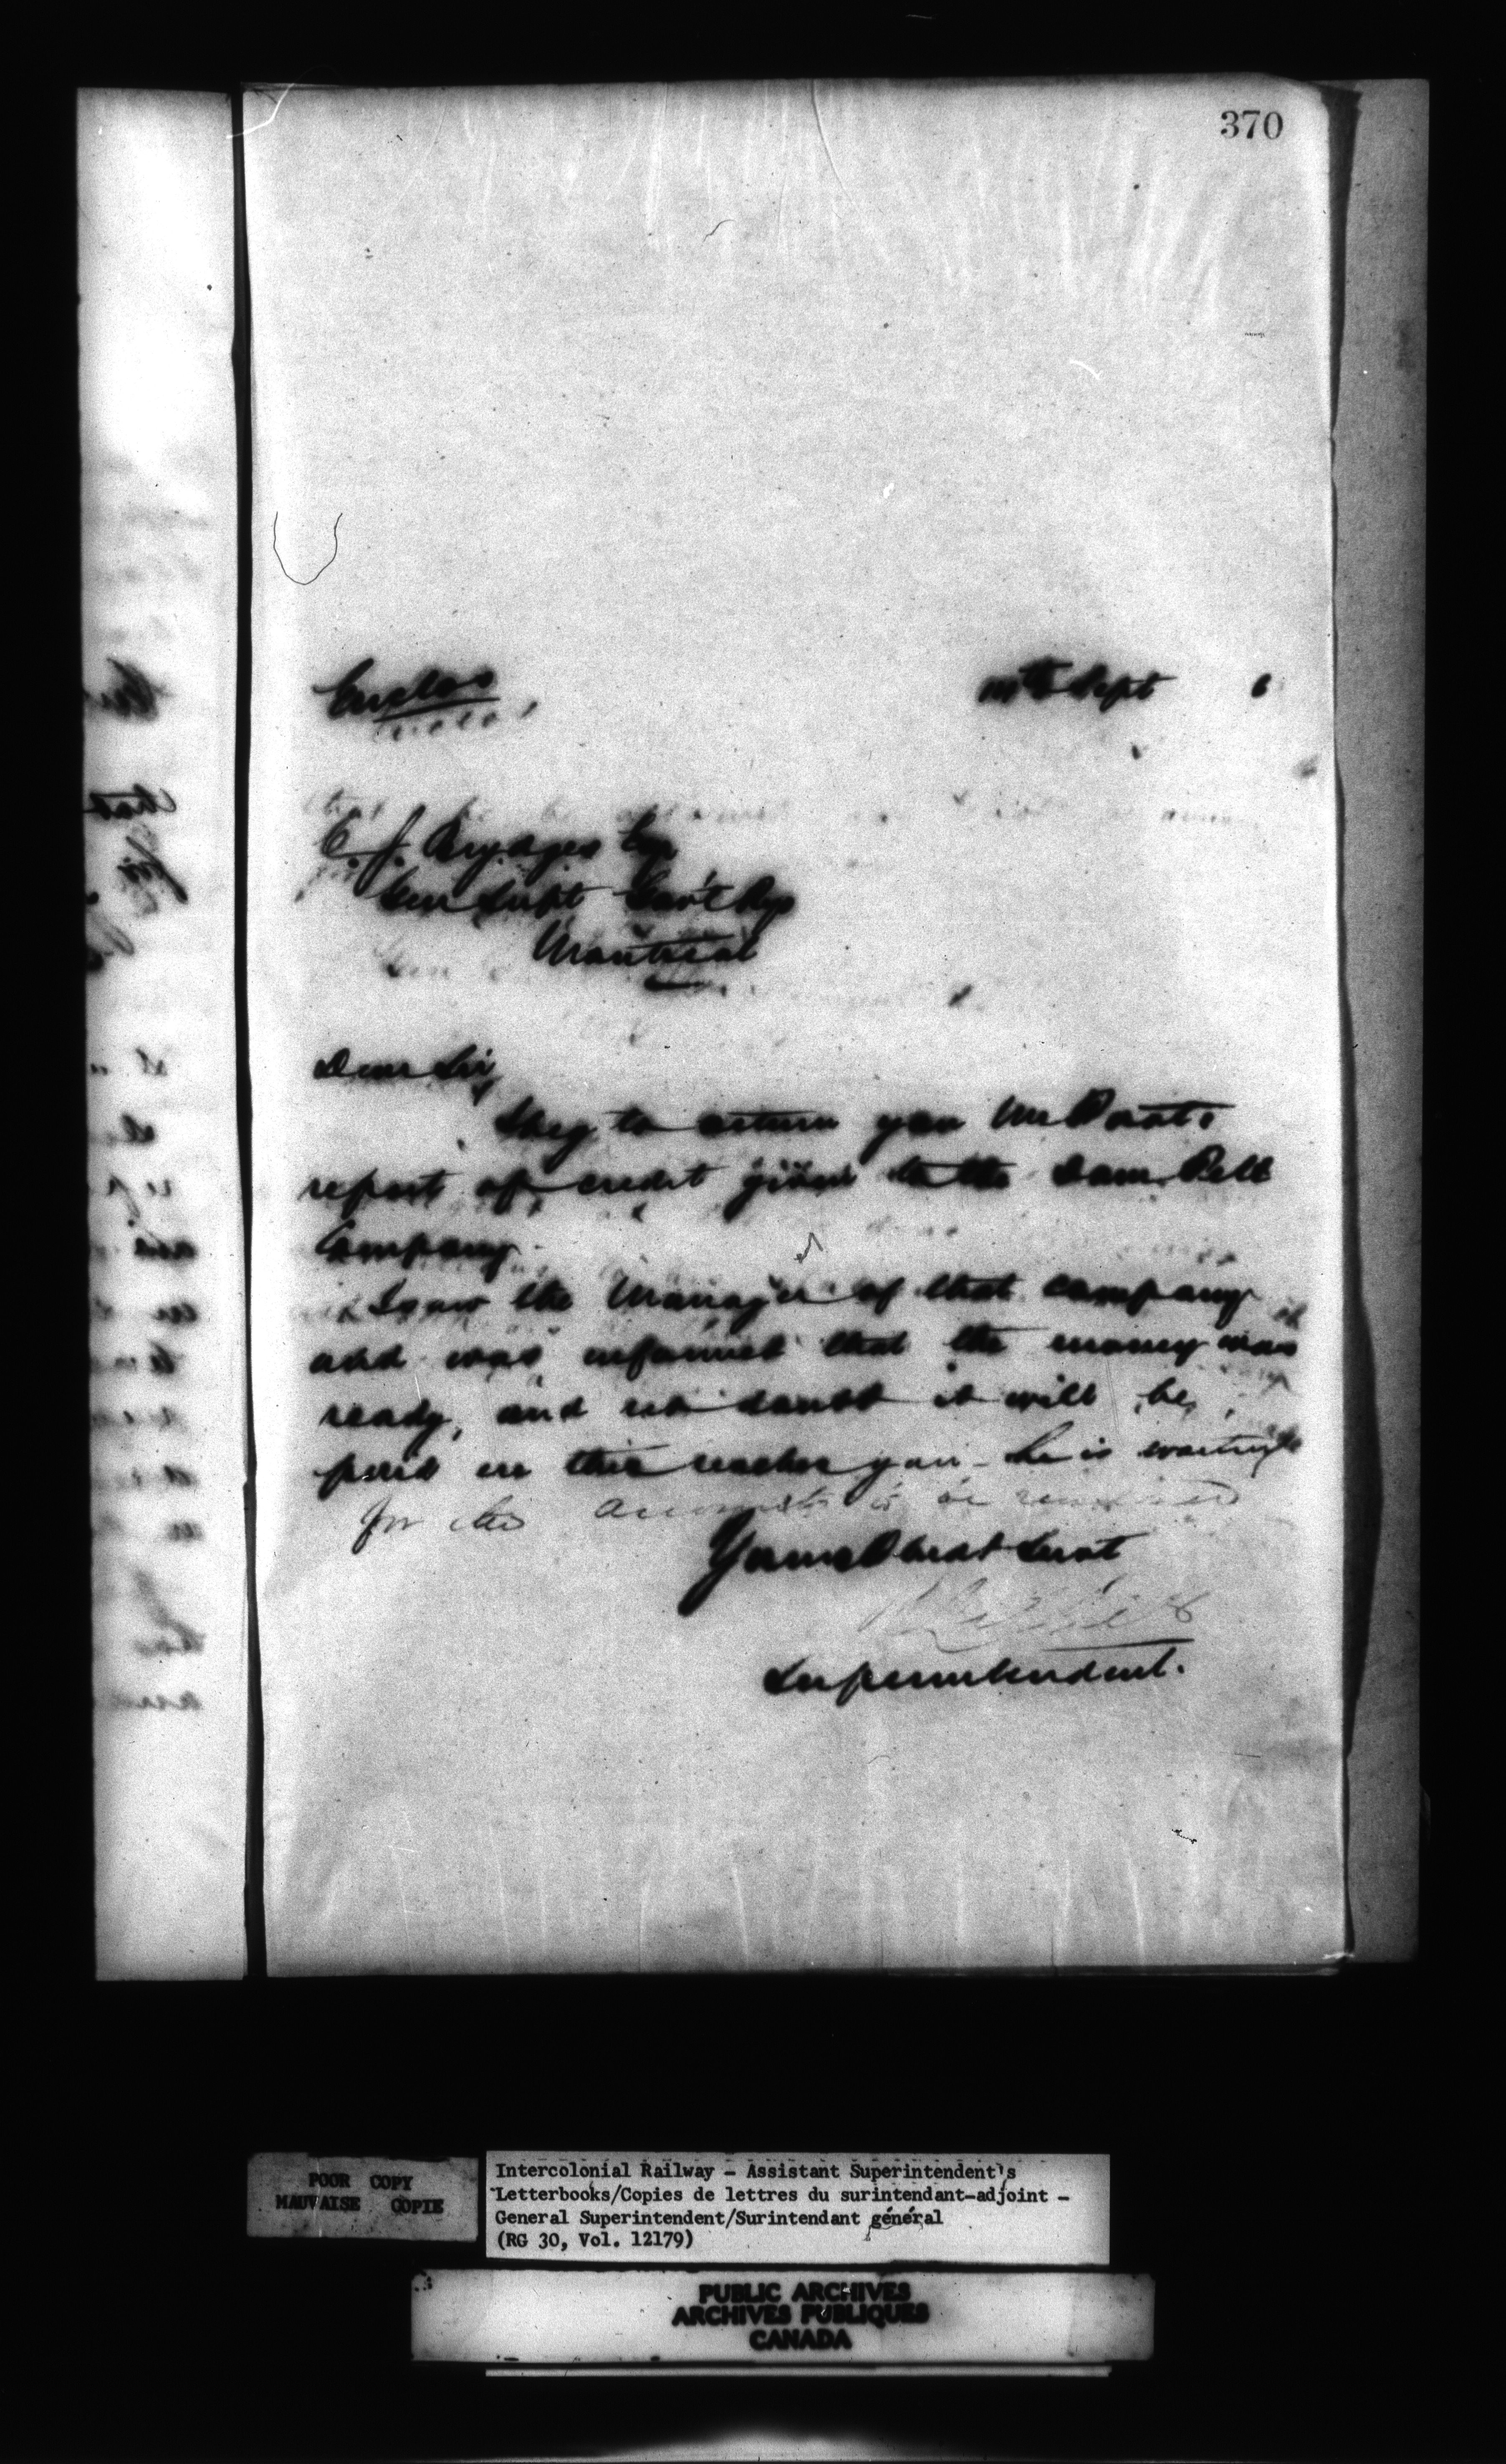 370
Enclos
Sept 6
C. J. Brydges Esq
Gen Supt Gov't Rys
Montreal
Dear Sir,
I beg to return you Mr
report of credit given to the Dom. Tel
Company.
I saw the Manager of that company
and was informed that the money was
ready, and no doubt it will be
paid ere this reaches you - he is waiting
for the accounts to be rendered
Yours Obedt Servt
Superintendent.
POOR COPY
MAUVAISE COPIE
Intercolonial Railway - Assistant Superintendent's
Letterbooks/Copies de lettres du surintendant-adjoint -
General Superintendent/Surintendant général
(RG 30, Vol. 12179)
PUBLIC ARCHIVES
ARCHIVES PUBLIQUES
CANADA